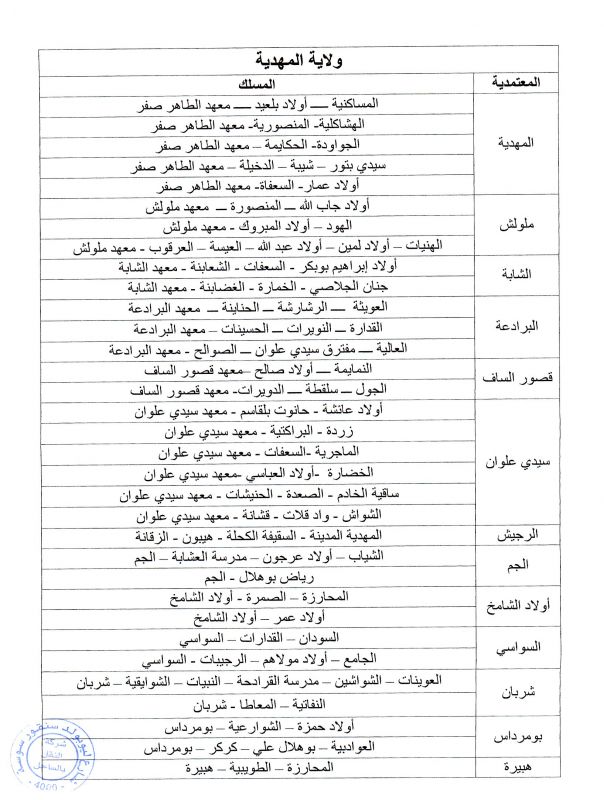 ولاية المهدية
المعتمدية المسلك
المهدية
المساكنية ـــ أولاد بلعيد ـــ معهد الطاهر صفر
الهشاكلية- المنصورية- معهد الطاهر صفر
الجواودة- الحكايمة – معهد الطاهر صفر
سيدي بنور – شيبة – الدخيلة – معهد الطاهر صفر
أولاد عمار- السعفاة- معهد الطاهر صفر
ملولش
أولاد جاب الله ـــ المنصورة ـــ معهد ملولش
الهود – أولاد المبروك - معهد ملولش
الهنيات – أولاد لمين – أولاد عبد الله – العيسة – العرقوب - معهد ملولش
الشابة
أولاد إبراهيم بوبكر - السعفات - الشعابنة - معهد الشابة
جنان الجلاصي - الخمارة - الغضابنة - معهد الشابة
البرادعة
العويثة ـــ الرشارشة ـــ الحناينة ـــ معهد البرادعة
القدارة – النويرات – الحسينات – معهد البرادعة
العالية ـــ مفترق سيدي علوان ـــ الصوالح - معهد البرادعة
قصور الساف
النمايمة ـــ أولاد صالح –معهد قصور الساف
الجول ـــ سلقطة ـــ الدويرات- معهد قصور الساف
سيدي علوان
أولاد عائشة - حانوت بلقاسم - معهد سيدي علوان
زردة - البراكتية - معهد سيدي علوان
الماجرية -السعفات - معهد سيدي علوان
الخضارة -أولاد العباسي -معهد سيدي علوان
ساقية الخادم - الصعدة - الحنيشات - معهد سيدي علوان
الشواش - واد قلات - قشانة - معهد سيدي علوان
الرجيش
المهدية المدينة - السقيفة الكحلة - هيبون - الزقانة
الجم
الشياب – أولاد عرجون – مدرسة العشابة – الجم
رياض بوهلال - الجم
أولاد الشامخ
المحارزة – الصمرة - أولاد الشامخ
أولاد عمر – أولاد الشامخ
السواسي
السودان – القدارات – السواسي
الجامع – أولاد مولاهم – الرجيبات - السواسي
شربان
العوينات – الشواشين – مدرسة القرادحة – النبيات – الشوايقية – شربان
النفاتية – المعاطا - شربان
بومرداس
أولاد حمزة – الشوارعية – بومرداس
العوادبية – بوهلال علي – كركر – بومرداس
هبيرة
المحارزة – الطويبية – هبيرة
شركة
النقل
بالساحل
شارع ليوبولد سنقور سوسة
4000